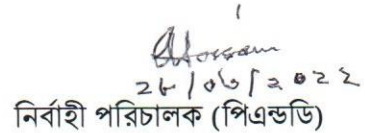 ২৮/০৬/২০২২
নির্বাহী পরিচালক (পিএন্ডডি)